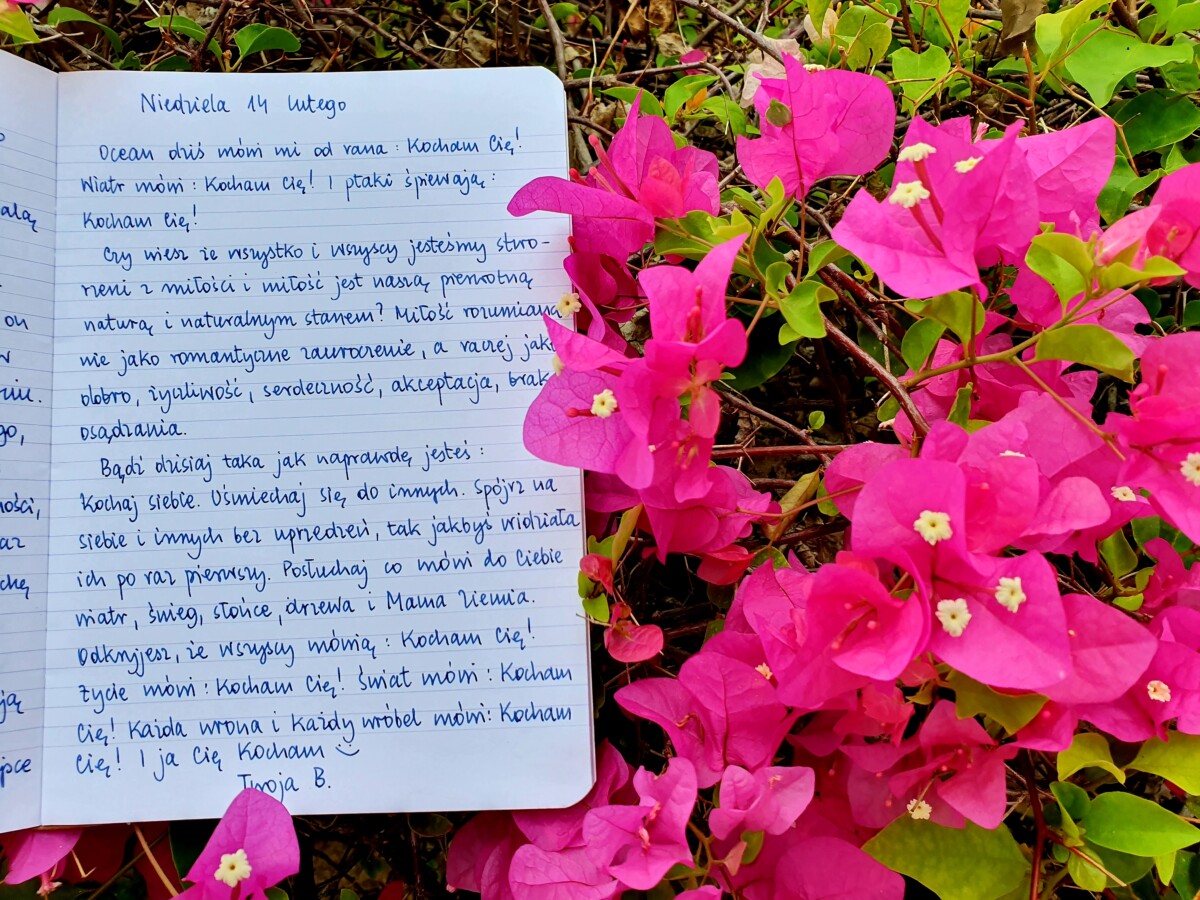 alą
on
w
nie.
go,
ności,
az
chę
ją
jsce
Niedziela 14 lutego
Ocean dziś mówi mi od rana : Kocham Cię!
Wiatr mówi : Kocham Cię! I ptaki śpiewają :
Kocham Cię!
Czy wiesz że wszystko i wszyscy jesteśmy stwo-
rzeni z miłości i miłość jest naszą pierwotną
naturą i naturalnym stanem? Miłość rozumiana
nie jako romantyczne zauroczenie, a raczej jako
dobro, życzliwość, serdeczność, akceptacja, brak
osądzania.
Bądź dzisiaj taka jak naprawdę jesteś :
Kochaj siebie. Uśmiechaj się do innych. Spójrz na
siebie i innych bez uprzedzeń, tak jakbyś widziała
ich po raz pierwszy. Posłuchaj co mówi do Ciebie
wiatr, śnieg, słońce, drzewa i Mama Ziemia.
Odkryjesz, że wszyscy mówią : Kocham Cię!
Życie mówi : Kocham Cię! Świat mówi : Kocham
Cię! Każda wrona i każdy wróbel mówi: Kocham
Cię! I ja Cię Kocham :)
Twoja B.